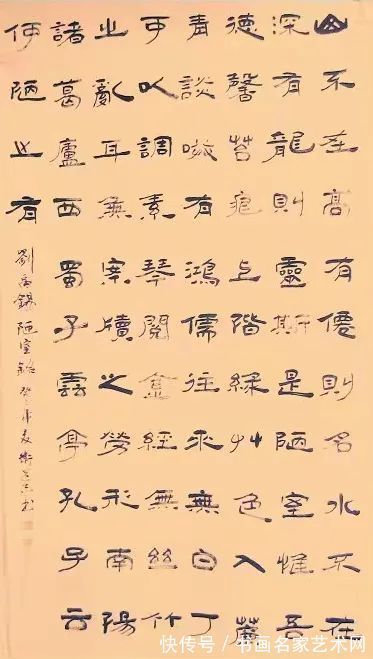 山不在高有僊則名水不在
深有龍則靈斯是陋室惟吾
德馨苔痕上階緑艸色入簾
青談咲有鴻儒往来無白丁
可以調素琴閱金經無絲竹
之亂耳無案牘之勞形南陽
諸葛廬西蜀子雲亭孔子云
何陋之有
劉禹錫陋室銘
快传号/书画名家艺术网